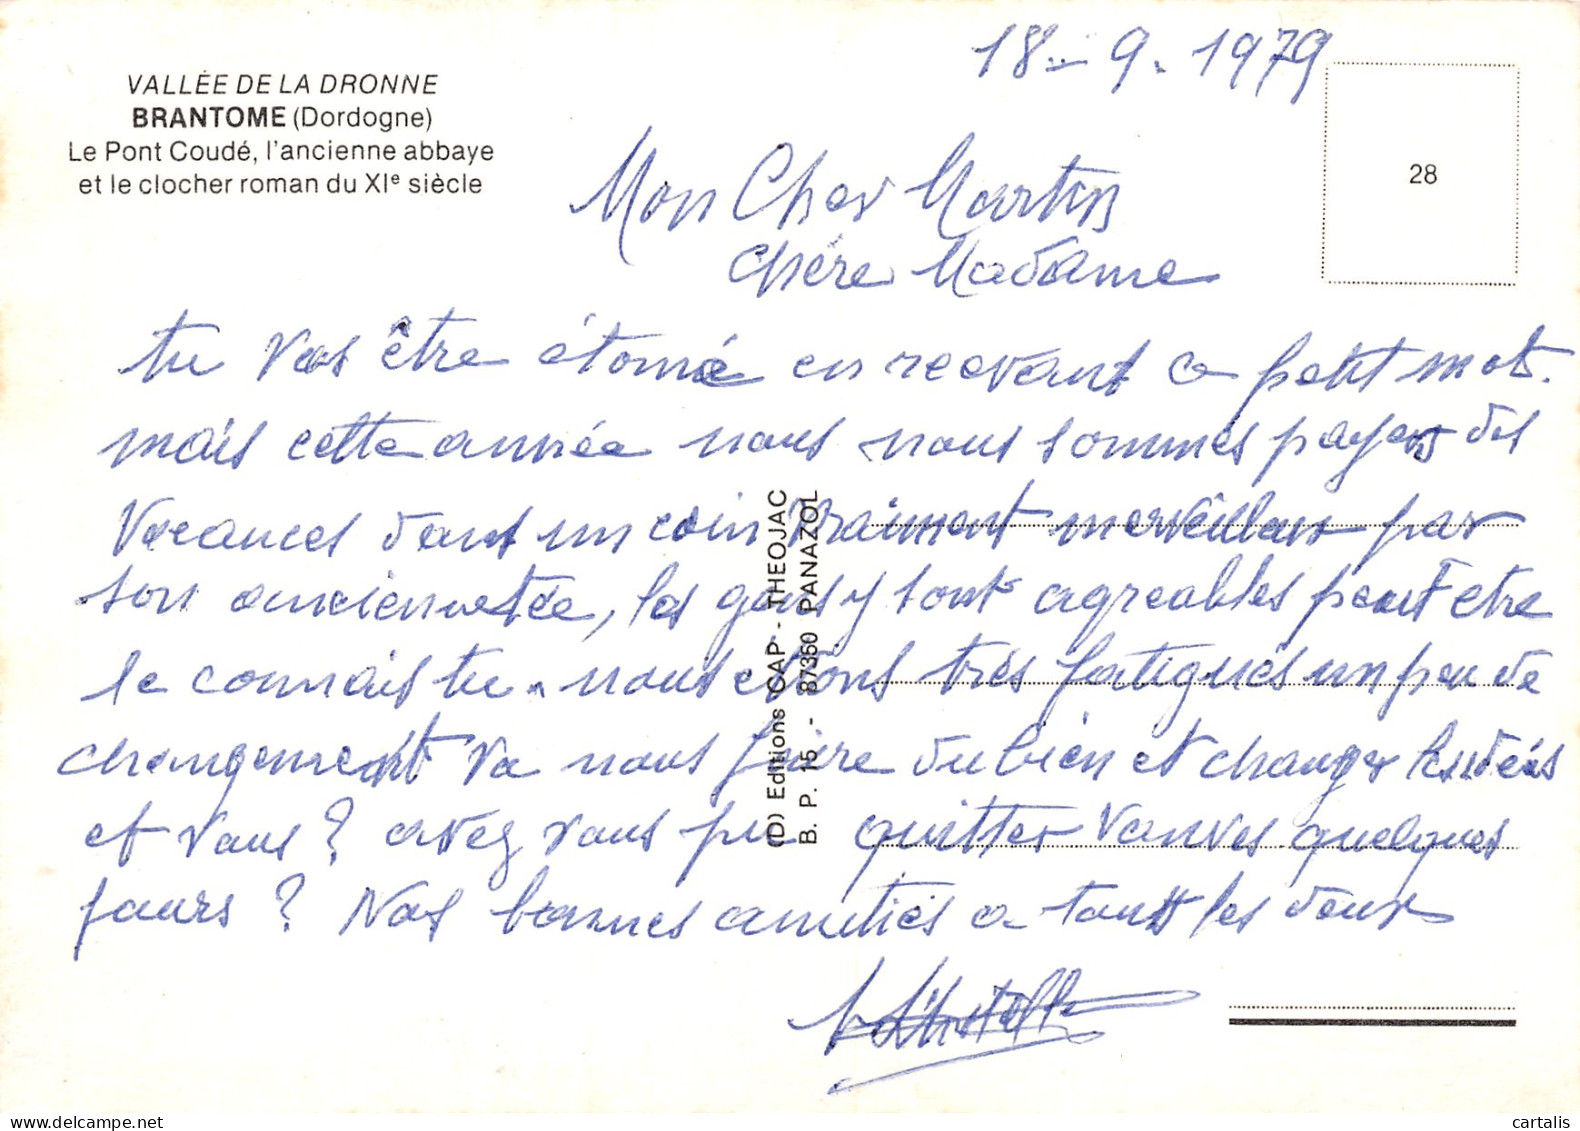 18-9-1979
VALLÉE DE LA DRONNE
BRANTOME (Dordogne)
Le Pont Coudé, l'ancienne abbaye
et le clocher roman du XIe siècle
28
Mon Cher Martin
chère Madame
tu vas être étonné en recevant ce petit mot.
mais cette année nous nous sommes payer des
vacances dans un coin vraiment merveilleux par
son ancienneté, les gens y sont agreables peut etre
le connais tu. nous etions très fatigués un peu de
changement va nous faire du bien et changer les idées
et vous? avez vous pu quitter Vanves quelques
jours? Nos bonnes amitiés a tous les deux
(D) Editions CAP - THEOJAC
B. P. 15 - 87360 PANAZOL
cartalis
www.delcampe.net